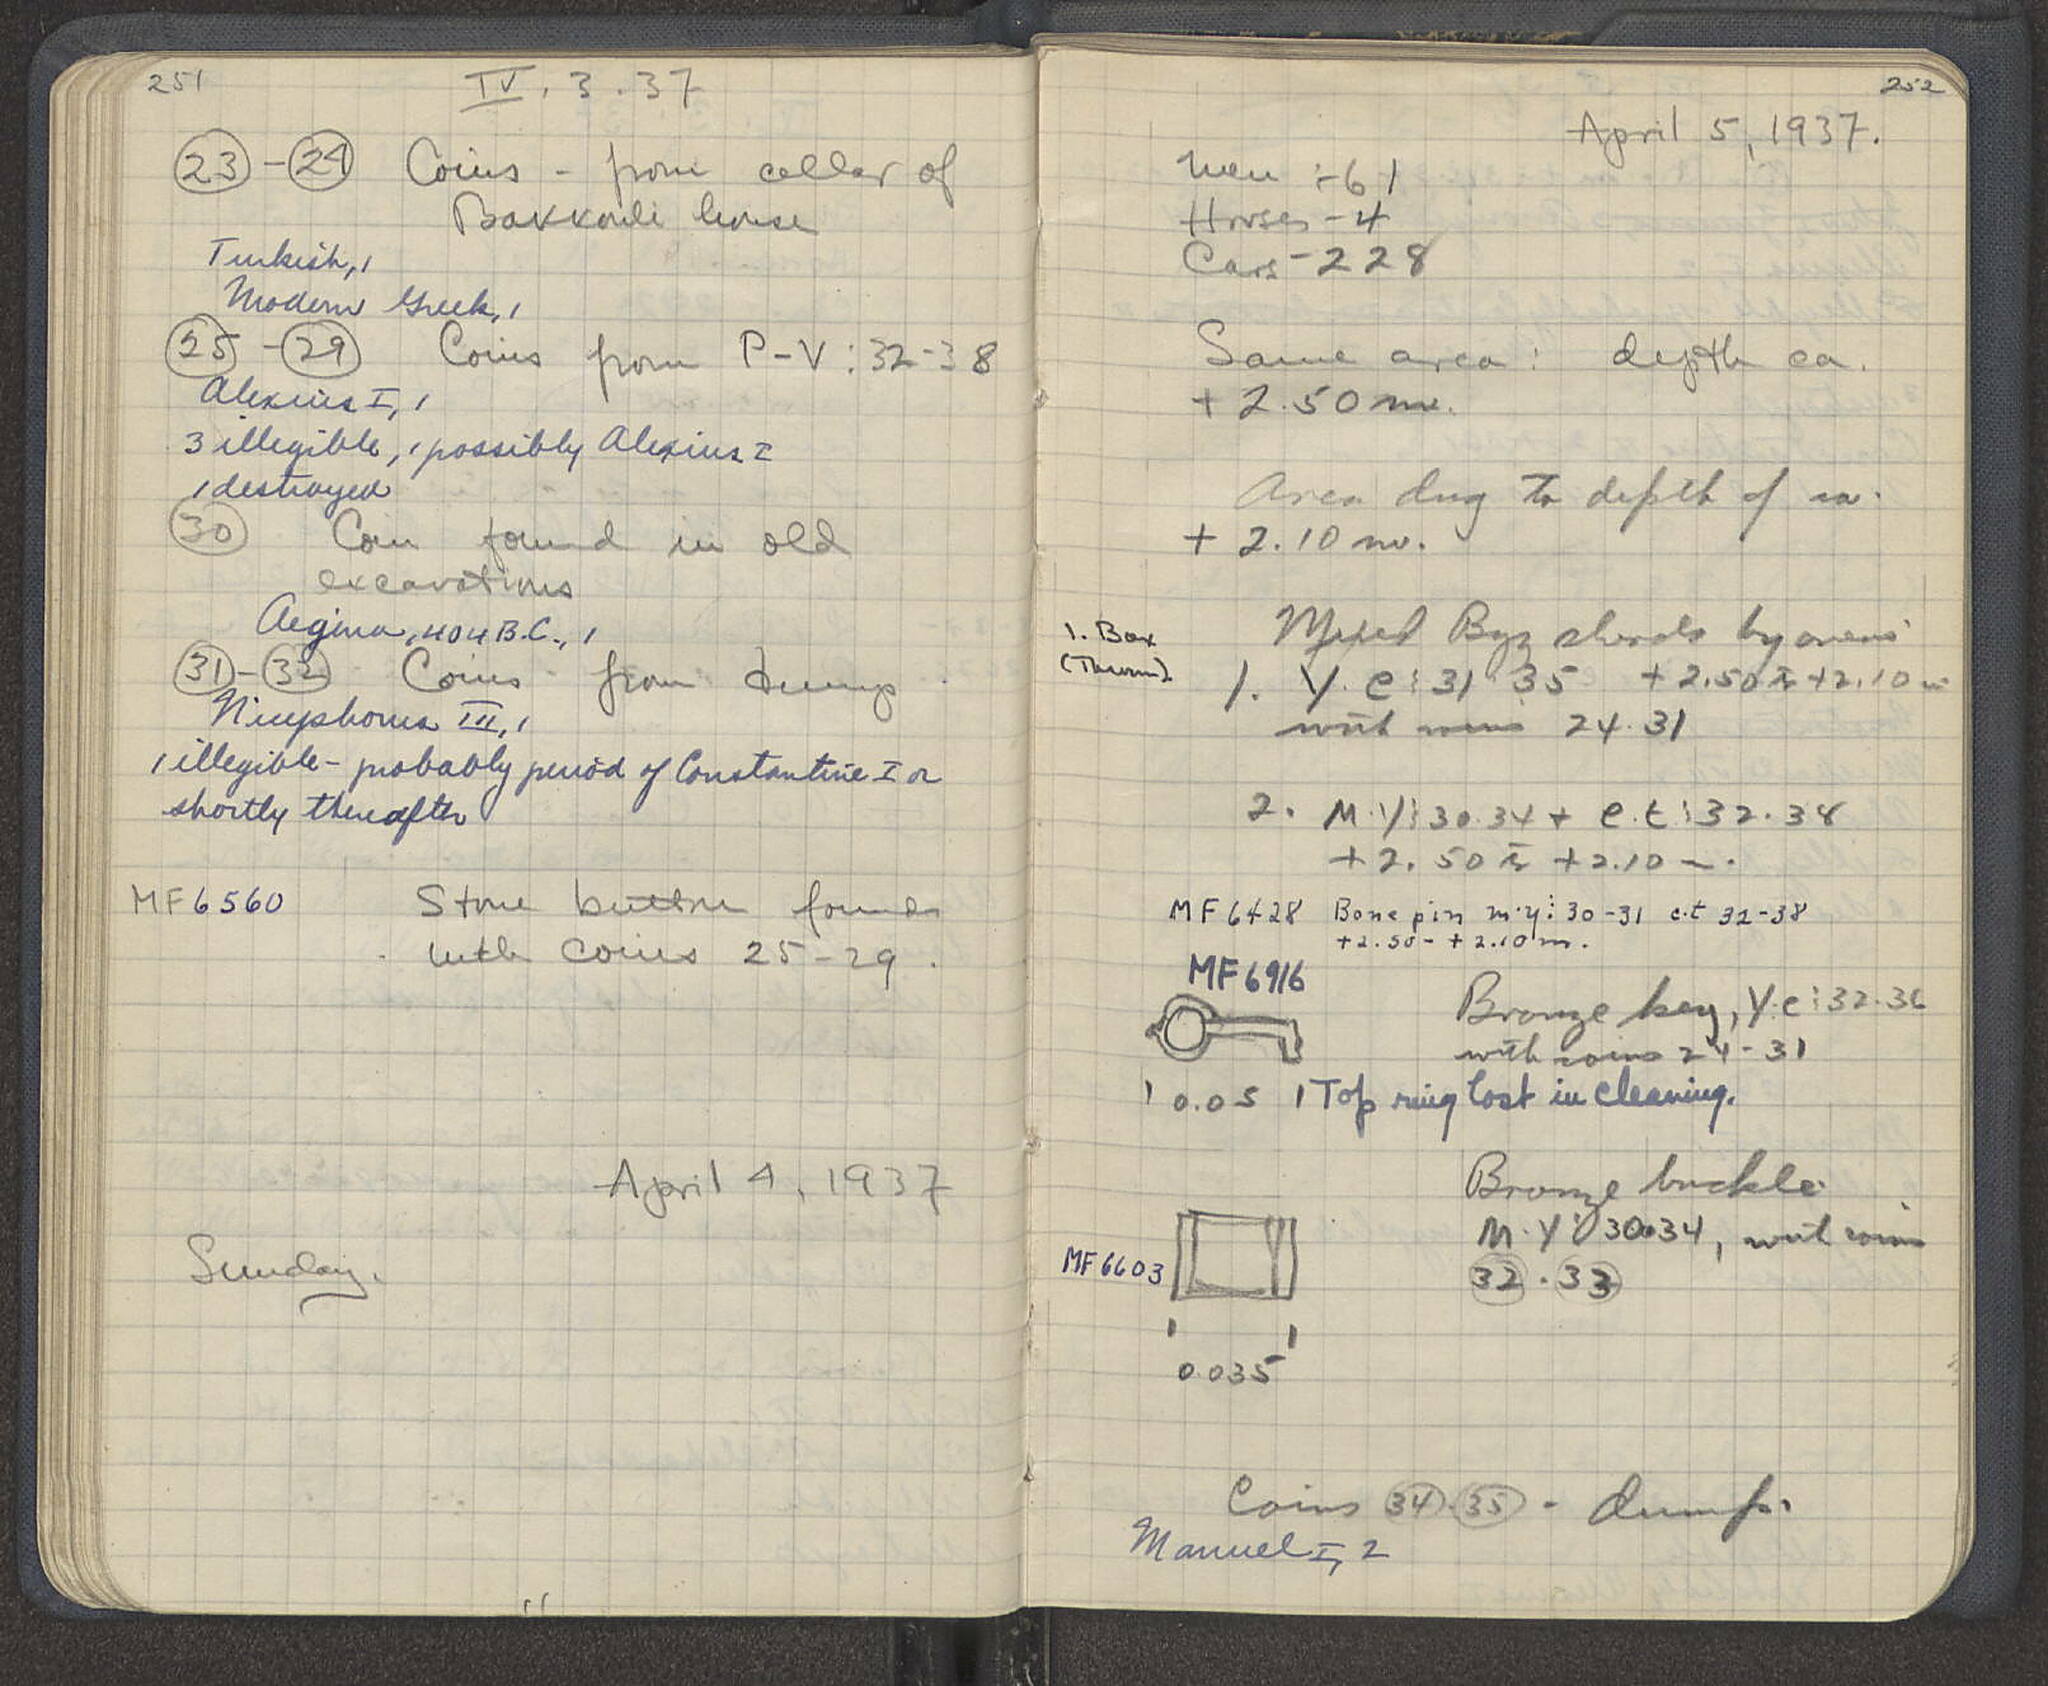 251
IV. 3. 37
23 - 24 Coins - from cellar of
Bakkouli house
Turkish, 1
Modern Greek, 1
25 - 29 Coins from P-V: 32-38
Alexius I, 1
3 illegible, 1 possibly Alexius I
1 destroyed
30 Coin found in old
excavations
Aegina, 404 B.C., 1
31 - 32 Coins - from dump.
Nicephorus III, 1
1 illegible - probably period of Constantine I or
shortly thereafter
MF 6560 Stone button found
with coins 25-29.
April 4, 1937
Sunday.
252
April 5, 1937.
Men - 61
Horses - 4
Cars - 228
Same area: depth ca.
+ 2.50 m.
Area dug to depth of ca.
+ 2.10 m.
1. Box
(Thrown)
Mixed Byz sherds by areas
1. Y. e: 31 35 +2.50 to +2.10 m
with coins 24-31
2. M.Y: 30.34 + e.t: 32.38
+2.50 to +2.10 m.
MF 6428 Bone pin m.y: 30-31 e.t 32-38
+2.50 - +2.10 m.
MF 6916
Bronze key, Y.e: 32.36
with coins 24-31
0.05 Top ring lost in cleaning.
Bronze buckle
M.Y: 30.34, with coins
32 . 33
MF 6603
0.035
Coins 34. 35 - dump.
Manuel I, 2